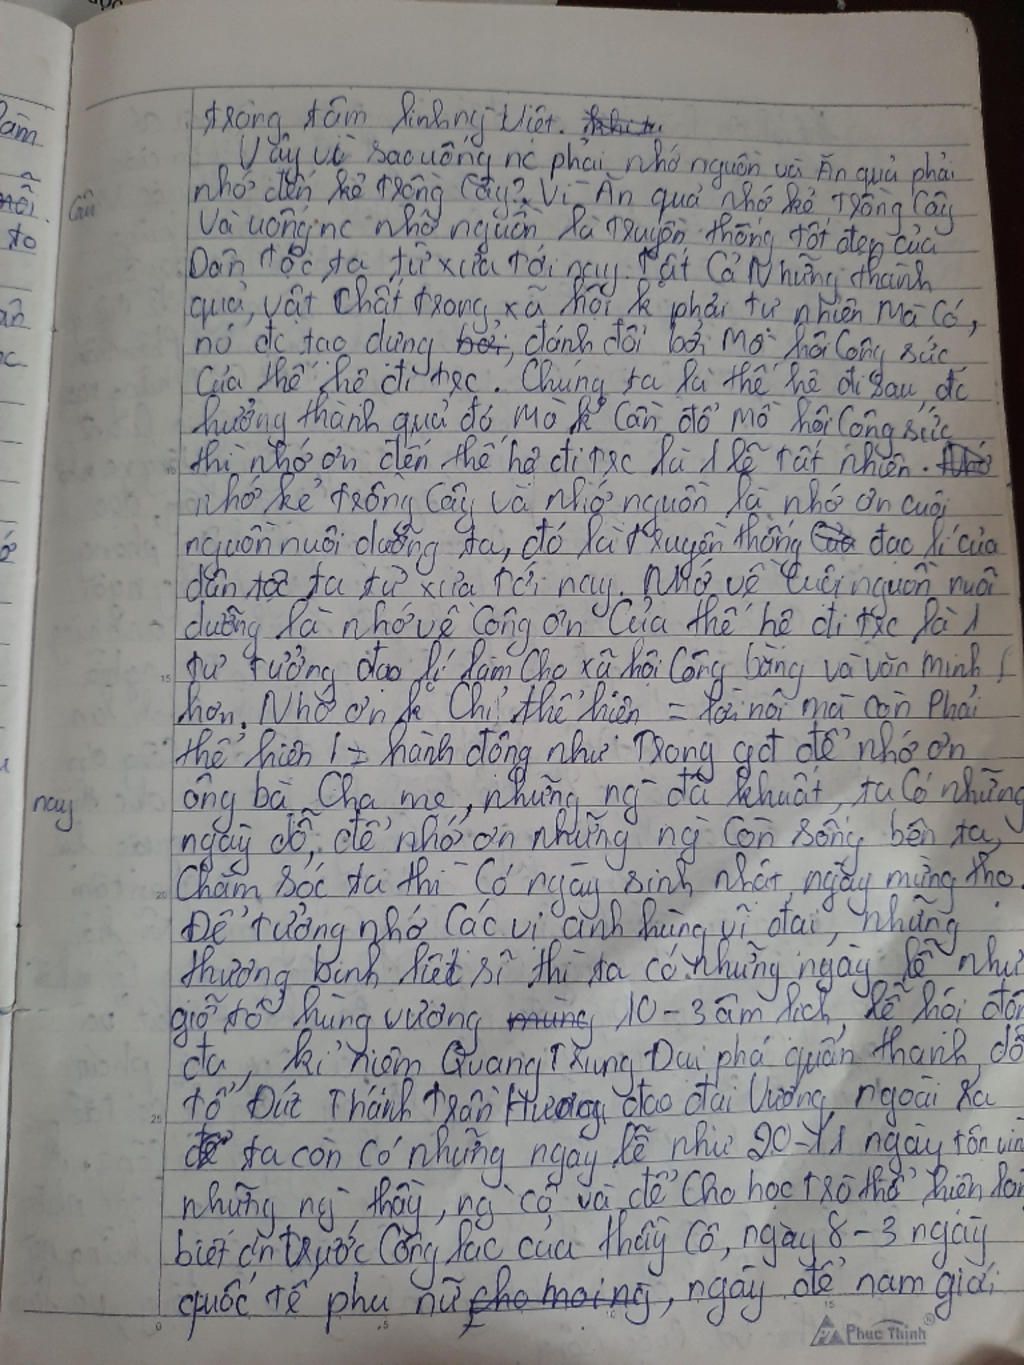 trong tâm linh ng việt.
Vậy vì sao uống nc phải nhớ nguồn và Ăn quả phải
nhớ đến kẻ trồng cây? Vì Ăn quả nhớ kẻ trồng cây
Và uống nc nhớ nguồn là truyền thống tốt đẹp của
Dân tộc ta từ xưa tới nay. Tất cả những thành
quả, vật chất trong xã hội k phải tự nhiên mà có,
nó đc tạo dựng bởi, đánh đổi bởi mồ hôi công sức
của thế hệ đi trc. Chúng ta là thế hệ đi sau, đc
hưởng thành quả đó mà k cần đổ mồ hôi công sức
thì nhớ ơn đến thế hệ đi trc là 1 lẽ tất nhiên. Nhớ
nhớ kẻ trồng cây và nhớ nguồn là nhớ ơn cuội
nguồn nuôi dưỡng ta, đó là truyền thống của đạo lí của
dân tộc ta từ xưa tới nay. Nhớ về cuội nguồn nuôi
dưỡng là nhớ về công ơn của thế hệ đi trc là 1
tư tưởng đạo lí làm cho xã hội công bằng và văn minh
hơn. Nhớ ơn k chỉ thể hiện = lời nói mà còn phải
thể hiện = hành động như trong gđ để nhớ ơn
ông bà cha mẹ, những ng đã khuất, ta có những
ngày dỗ, để nhớ ơn những ng còn sống bên ta,
chăm sóc ta thì có ngày sinh nhật, ngày mừng thọ.
Để tưởng nhớ các vị anh hùng vĩ đại, những
thương binh liệt sĩ thì ta có những ngày lễ như
giỗ tổ hùng vương mùng 10-3 âm lịch, lễ hội đốn
đa, kỉ niệm Quang Trung Đại phá quân thanh, dỗ
tổ Đức Thánh trần Hương đạo đại Vương, ngoài ra
để ta còn có những ngày lễ như 20-11 ngày tôn vin
những ng thầy, ng cô và để cho học trò thể hiện lòn
biết ơn trước công lao của thầy cô, ngày 8-3 ngày
quốc tế phụ nữ cho mọi ng, ngày để nam giới
Câu
nay
Phuc Thinh